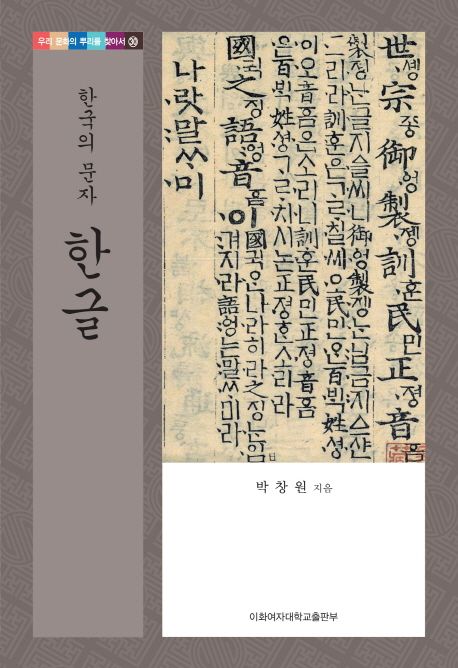 우리 문화의 뿌리를 찾아서 30
한국의 문자
한글
世솅宗종御ᅌᅥᆼ製졩訓훈民민正졍音ᅙᅳᆷ
製졩는글지ᅀᅳᆯ씨니御ᅌᅥᆼ製졩는님금지ᅀᅳ샨
그리라訓훈은ᄀᆞᄅᆞ칠씨오民민ᄋᆞᆫ百ᄇᆡᆨ姓셩
이오音ᅙᅳᆷ은소리니訓훈民민正졍音ᅙᅳᆷ은
百ᄇᆡᆨ姓셩ᄀᆞᄅᆞ치시논正졍ᄒᆞᆫ소리라
國귁之징語ᅌᅥᆼ音ᅙᅳᆷ이
國귁ᄋᆞᆫ나라히라之징는입
겨지라語ᅌᅥᆼ는말ᄊᆞ미라
나랏말ᄊᆞ미
박창원 지음
이화여자대학교출판부